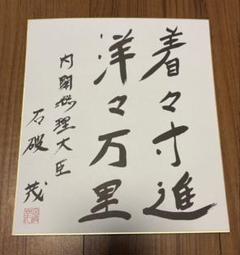 着々寸進
洋々万里
内閣総理大臣
石破茂